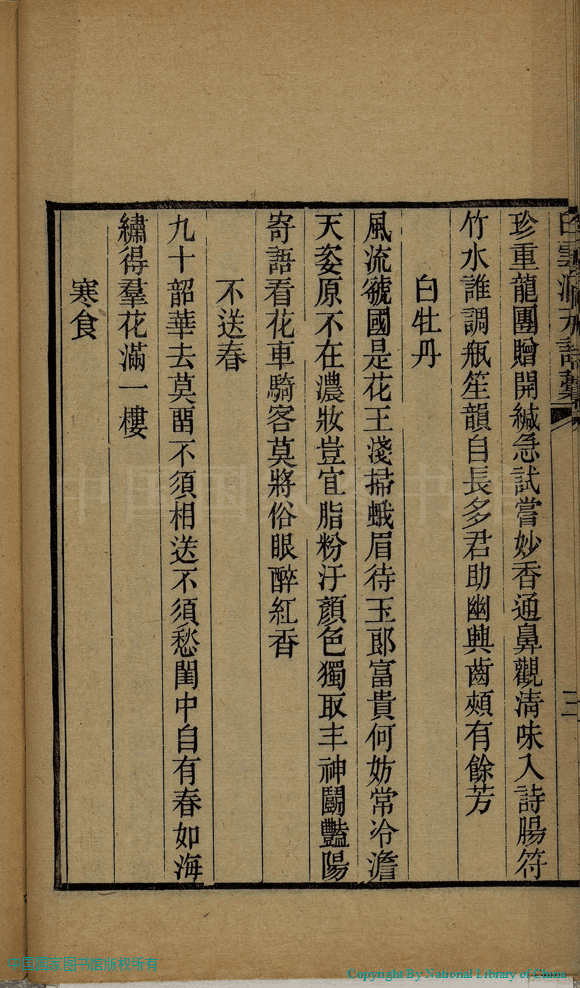 珍重龍團贈開緘急試嘗妙香通鼻觀淸味入詩腸符
竹水誰調瓶笙韻自長多君助幽興齒頰有餘芳
白牡丹
風流虢國是花王淺掃蛾眉待玉郞富貴何妨常冷澹
天姿原不在濃妝豈宜脂粉汙顏色獨取丰神鬬豔陽
寄語看花車騎客莫將俗眼醉紅香
不送春
九十韶華去莫畱不須相送不須愁閨中自有春如海
繡得羣花滿一樓
寒食
三
中国国家图书馆版权所有
Copyright By National Library of China